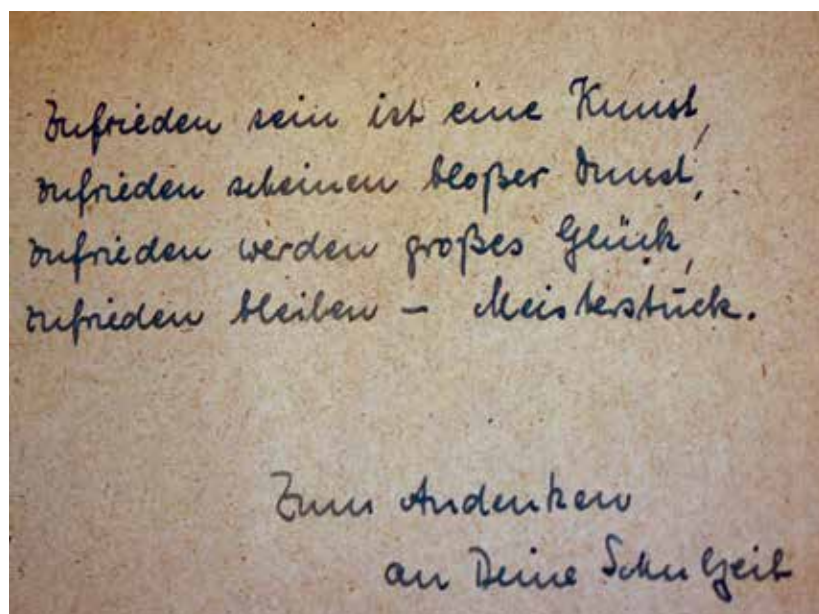 Zufrieden sein ist eine Kunst,
zufrieden scheinen bloßer Dunst,
zufrieden werden großes Glück,
zufrieden bleiben – Meisterstück.
Zum Andenken
an Deine Schulzeit